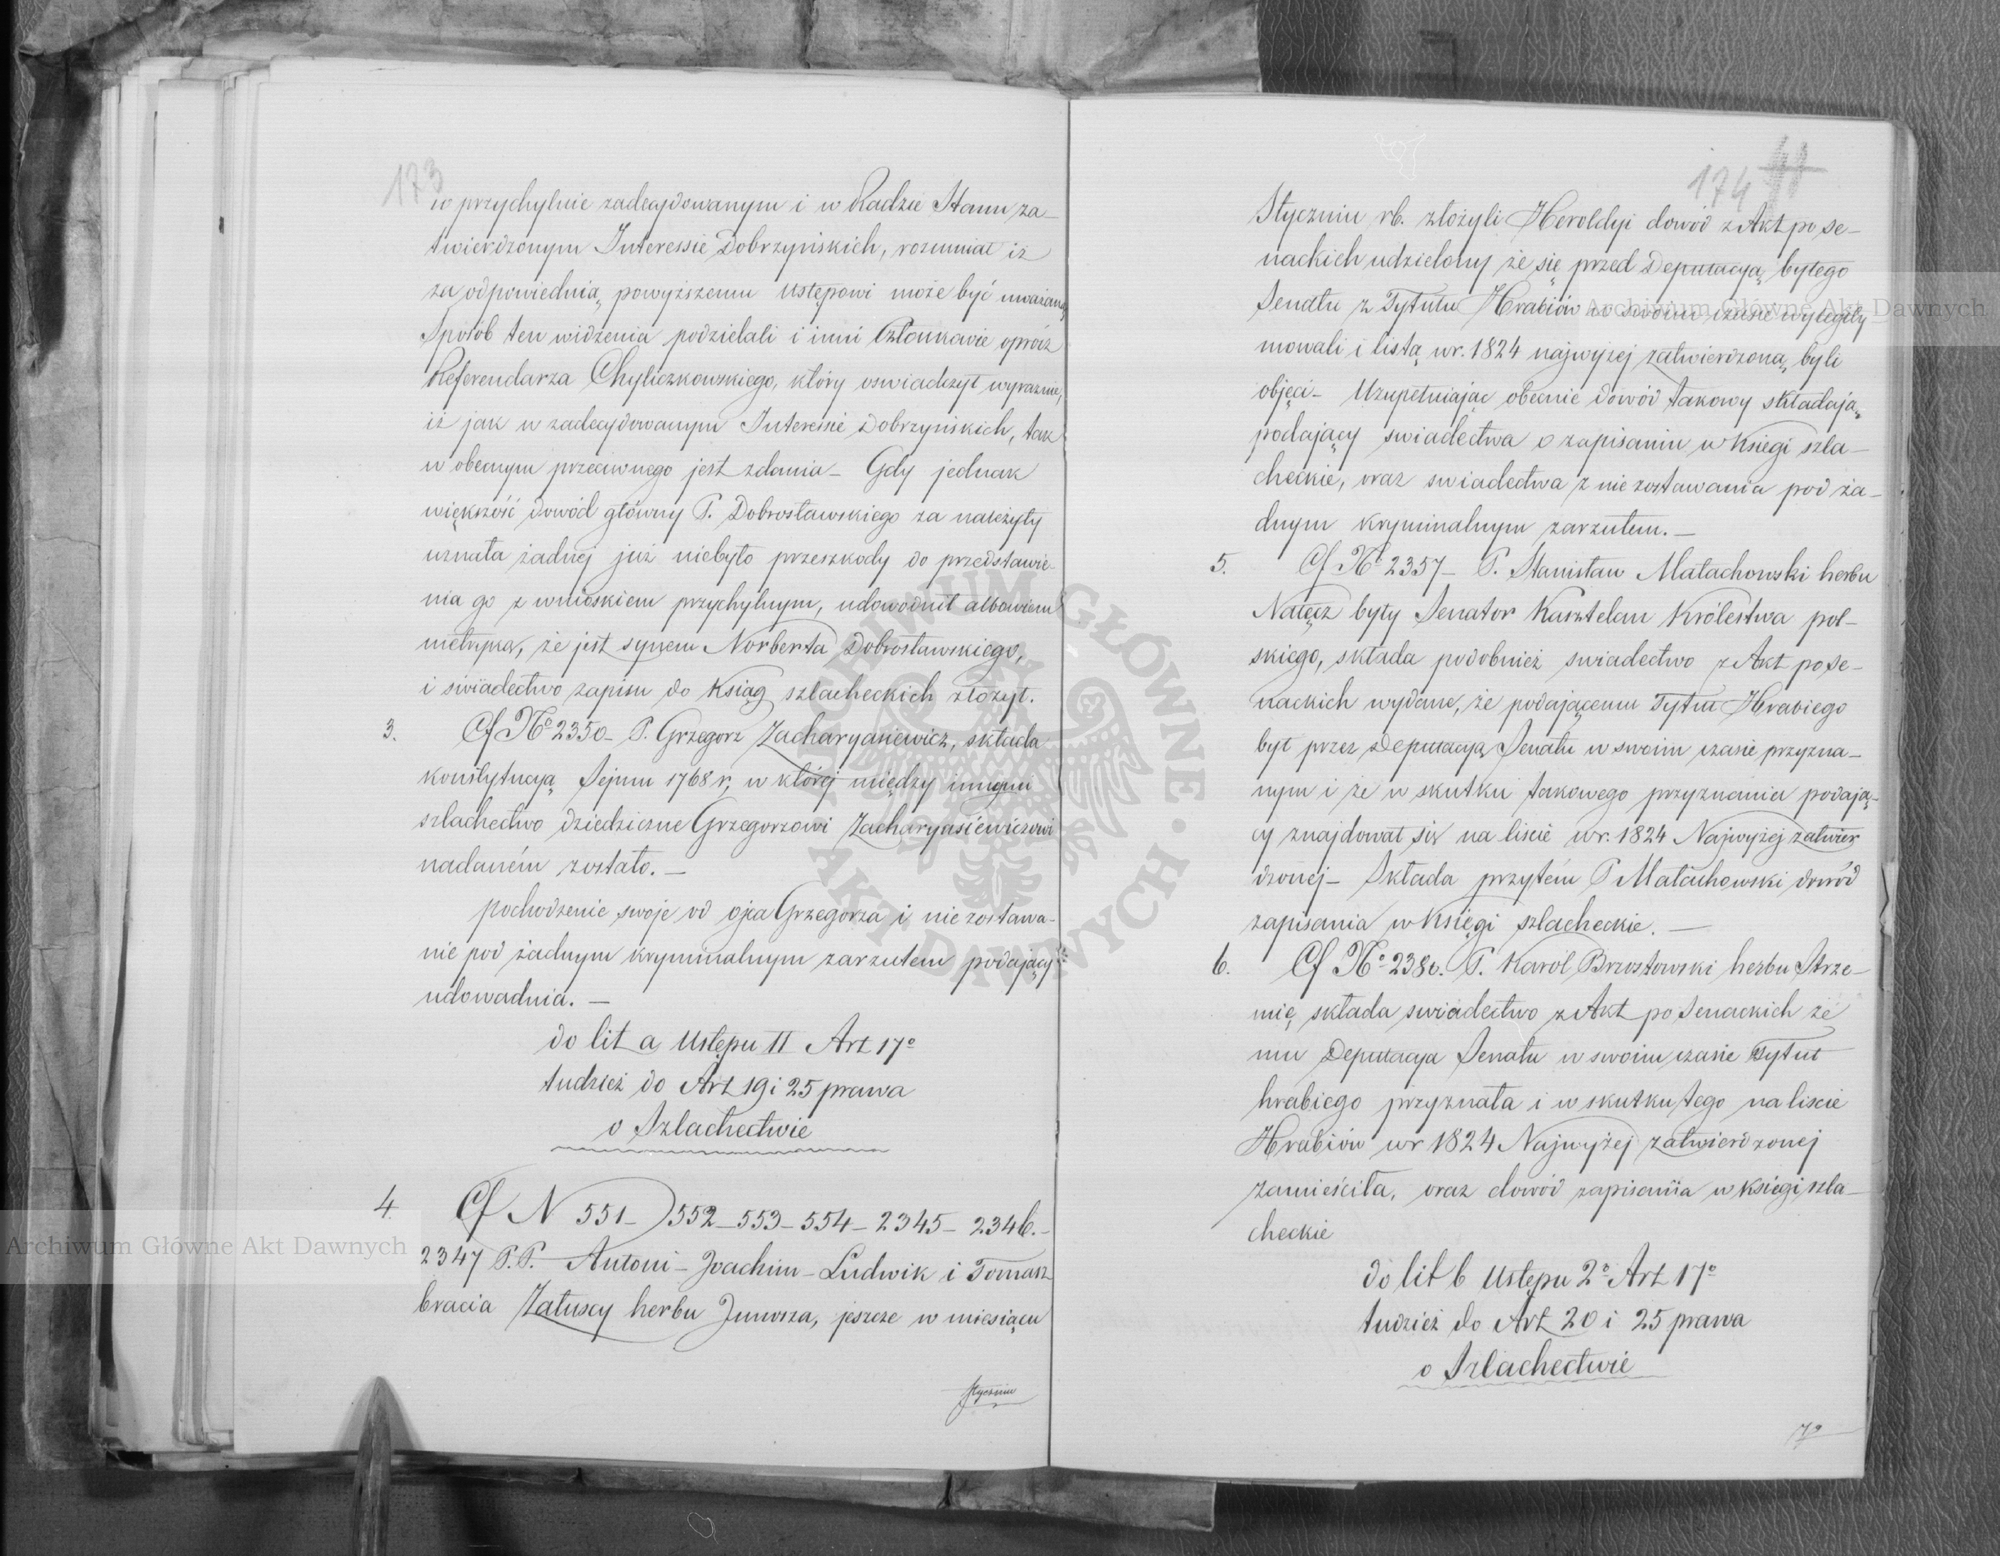 173
w przychylnie zadecydowanym i w Radzie Stanu za-
twierdzonym Interessie Dobrzyńskich, rozumiał iż
za odpowiednią powyższemu ustępowi może być uważaną
Sposób ten widzenia podzielali i inni Członkowie oprócz
Referendarza Chyliczkowskiego, który oswiadczył wyraznie,
iż jak w zadecydowanym Interessie Dobrzyńskich, tak
w obecnym przeciwnego jest zdania – Gdy jednak
większość dowód główny P. Dobrosławskiego za należyty
uznała żadnej już niebyło przeszkody do przedstawie-
nia go z wnioskiem przychylnym, udowodnił albowiem
metryką, że jest synem Norberta Dobrosławskiego,
i swiadectwo zapisu do Ksiąg szlacheckich złożył.
3. Cf No 2350 – P. Grzegorz Zacharyasiewicz, składa
konstytucyą Sejmu 1768 r, w której między innymi
szlachectwo dziedziczne Grzegorzowi Zacharyasiewiczowi
nadaném zostało. –
pochodzenie swoje od ojca Grzegorza i nie zostawa-
nie pod żadnym kryminalnym zarzutem podający
udowadnia. –
do lit a Ustępu II Art 17o
tudzież do Art 19 i 25 prawa
o Szlachectwie
4. Cf N 551 – 552 – 553 – 554 – 2345 – 2346. –
2347 P.P. Antoni – Joachim – Ludwik i Tomasz
bracia Załuscy herbu Junosza, jeszcze w miesiącu
Styczniu
174 
Styczniu rb. złożyli Heroldyi dowód z Akt po Se-
nackich udzielony że się przed Deputacyą byłego
Senatu z Tytułu Hrabiów w swoim czasie wylegity
mowali i listą w r. 1824 najwyżej zatwierdzoną byli
objęci – Uzupełniając obecnie dowód takowy składają
podający swiadectwa o zapisaniu w Księgi szla-
checkie, oraz swiadectwa z nie zostawania pod ża-
dnym kryminalnym zarzutem. –
5. Cf No 2357 – P. Stanisław Małachowski herbu
Nałęcz były Senator Kasztelan Królestwa pol-
skiego, składa podobnież swiadectwo z Akt po Se-
nackich wydane, że podającemu Tytuł Hrabiego
był przez Deputacyą Senatu w swoim czasie przyzna-
nym i że w skutku takowego przyznania podają-
cy znajdował się na liście w r. 1824 Najwyżej zatwier
dzonej – Składa przytém P Małachowski dowód
zapisania w Księgi szlacheckie. –
6. Cf No 2380. P. Karól Brzostowski herbu Strze-
mię składa swiadectwo z Akt po Senackich że
mu Deputacya Senatu w swoim czasie Tytuł
hrabiego przyznała i w skutku tego na liscie
Hrabiów w r 1824 Najwyżej zatwierdzonej
zamieściła, oraz dowód zapisania w Księgi szla-
checkie
do lit b Ustępu 2o Art 17o
tudzież do Art 20 i 25 prawa
o Szlachectwie
7o
Archiwum Główne Akt Dawnych
Archiwum Główne Akt Dawnych
ARCHIWUM GŁÓWNE · AKT DAWNYCH ·